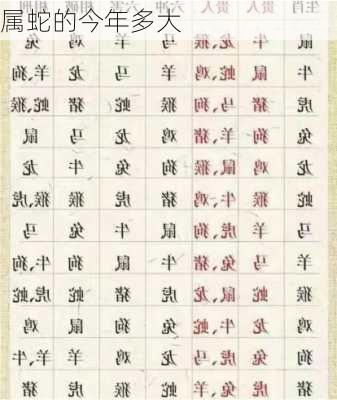 属蛇的今年多大
生肖 贵人 贵人 六冲 六害 相破 相刑
鼠 牛 龙、猴 马 羊 鸡 兔
牛 鼠 蛇、鸡 羊 马 龙 羊、狗
虎 猪 马、狗 猴 蛇 猪 蛇、猴
兔 狗 羊、猪 鸡 龙 马 鼠
龙 鸡 鼠、猴 狗 兔 牛 龙
蛇 猴 牛、鸡 猪 虎 猴 猴、虎
马 羊 虎、狗 鼠 牛 兔 马
羊 马 兔、猪 牛 鼠 狗 牛、狗
猴 蛇 鼠、龙 虎 猪 蛇 虎、蛇
鸡 龙 牛、蛇 兔 狗 鼠 鸡
狗 兔 虎、马 龙 鸡 羊 羊、牛
猪 虎 兔、羊 蛇 猴 虎 猪